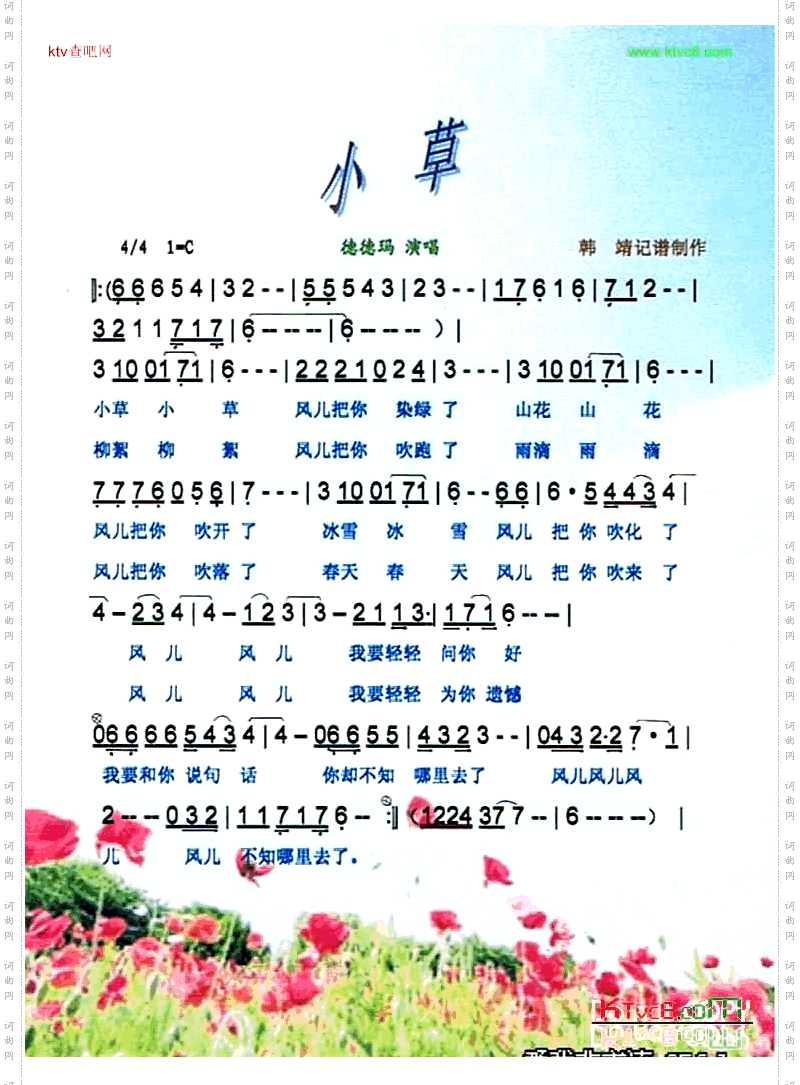 ktv查吧网 www.ktvc8.com
小草
4/4 1=C 德德玛 演唱 韩 靖记谱制作
‖:(6 6 6 5 4 | 3 2 - - | 5 5 5 4 3 | 2 3 - - | 1 7 6 1 6 | 7 1 2 - - |
3 2 1 1 7 1 7 | 6 - - - - | 6 - - - - ) |
3 10 01 71 | 6 - - - | 2 2 2 1 0 2 4 | 3 - - - | 3 10 01 71 | 6 - - - |
小草 小 草 风儿把你 染绿 了 山花 山 花
柳絮 柳 絮 风儿把你 吹跑 了 雨滴 雨 滴
7 7 7 6 0 5 6 | 7 - - - | 3 10 01 71 | 6 - - 66 | 6 · 5 4 4 3 4 |
风儿把你 吹开 了 冰雪 冰 雪 风儿 把 你 吹化 了
风儿把你 吹落 了 春天 春 天 风儿 把 你 吹来 了
4 - 2 3 4 | 4 - 1 2 3 | 3 - 2 1 1 1 3· | 1 7 1 6 - - - |
风 儿 风 儿 我要轻轻 问你 好
风 儿 风 儿 我要轻轻 为你 遗憾
0 6 6 6 6 5 4 3 4 | 4 - 0 6 6 5 5 | 4 3 2 3 - - | 0 4 3 2·2 7 · 1 |
我要和你 说句 话 你却不知 哪里去了 风儿风儿风
2 - - 0 3 2 | 1 1 7 1 7 6 - - :‖ (1224 37 7 - - | 6 - - - - ) |
儿 风儿 不知哪里去了。
KTvc8.com
词曲网